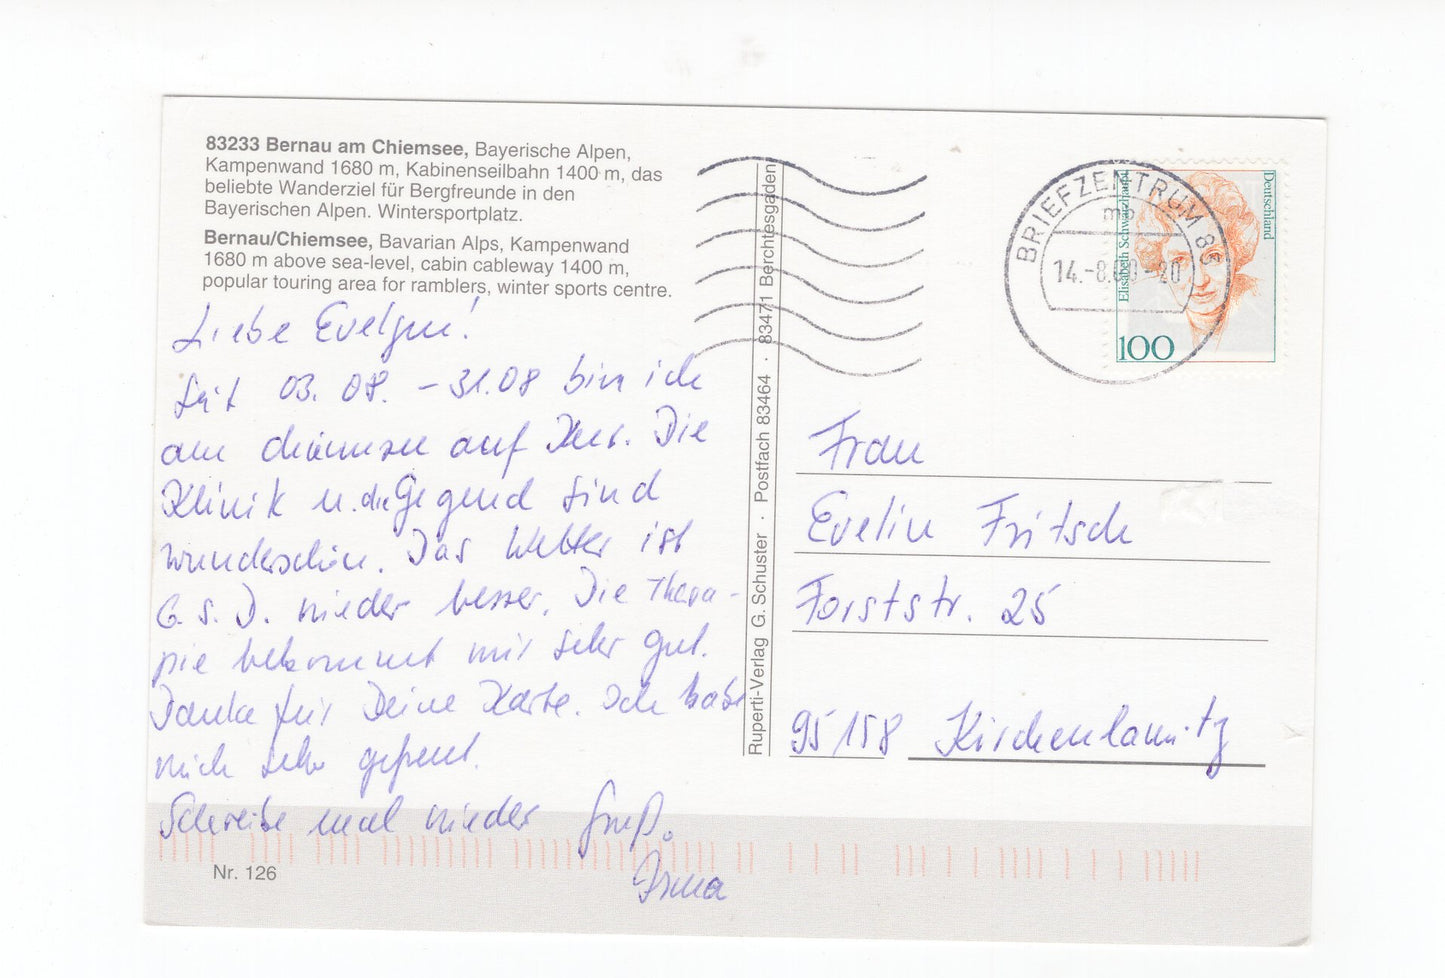 83233 Bernau am Chiemsee, Bayerische Alpen,
Kampenwand 1680 m, Kabinenseilbahn 1400 m, das
beliebte Wanderziel für Bergfreunde in den
Bayerischen Alpen. Wintersportplatz.
Bernau/Chiemsee, Bavarian Alps, Kampenwand
1680 m above sea-level, cabin cableway 1400 m,
popular touring area for ramblers, winter sports centre.
Liebe Evelyn!
Seit 03. 08. – 31.08 bin ich
am Chiemsee auf Kur. Die
Klinik u. die Gegend sind
wunderschön. Das Wetter ist
G. S. D. wieder besser. Die Thera-
pie bekommt mir sehr gut.
Danke für Deine Karte. Ich habe
mich sehr gefreut.
Schreibe mal wieder Gruß.
Irma
Nr. 126
Ruperti-Verlag G. Schuster · Postfach 83464 · 83471 Berchtesgaden
BRIEFZENTRUM 83
14.-8.00-20
Deutschland
Elisabeth Schwarzhaupt
100
Frau
Evelin Fritsch
Forststr. 25
95158 Kirchenlamitz